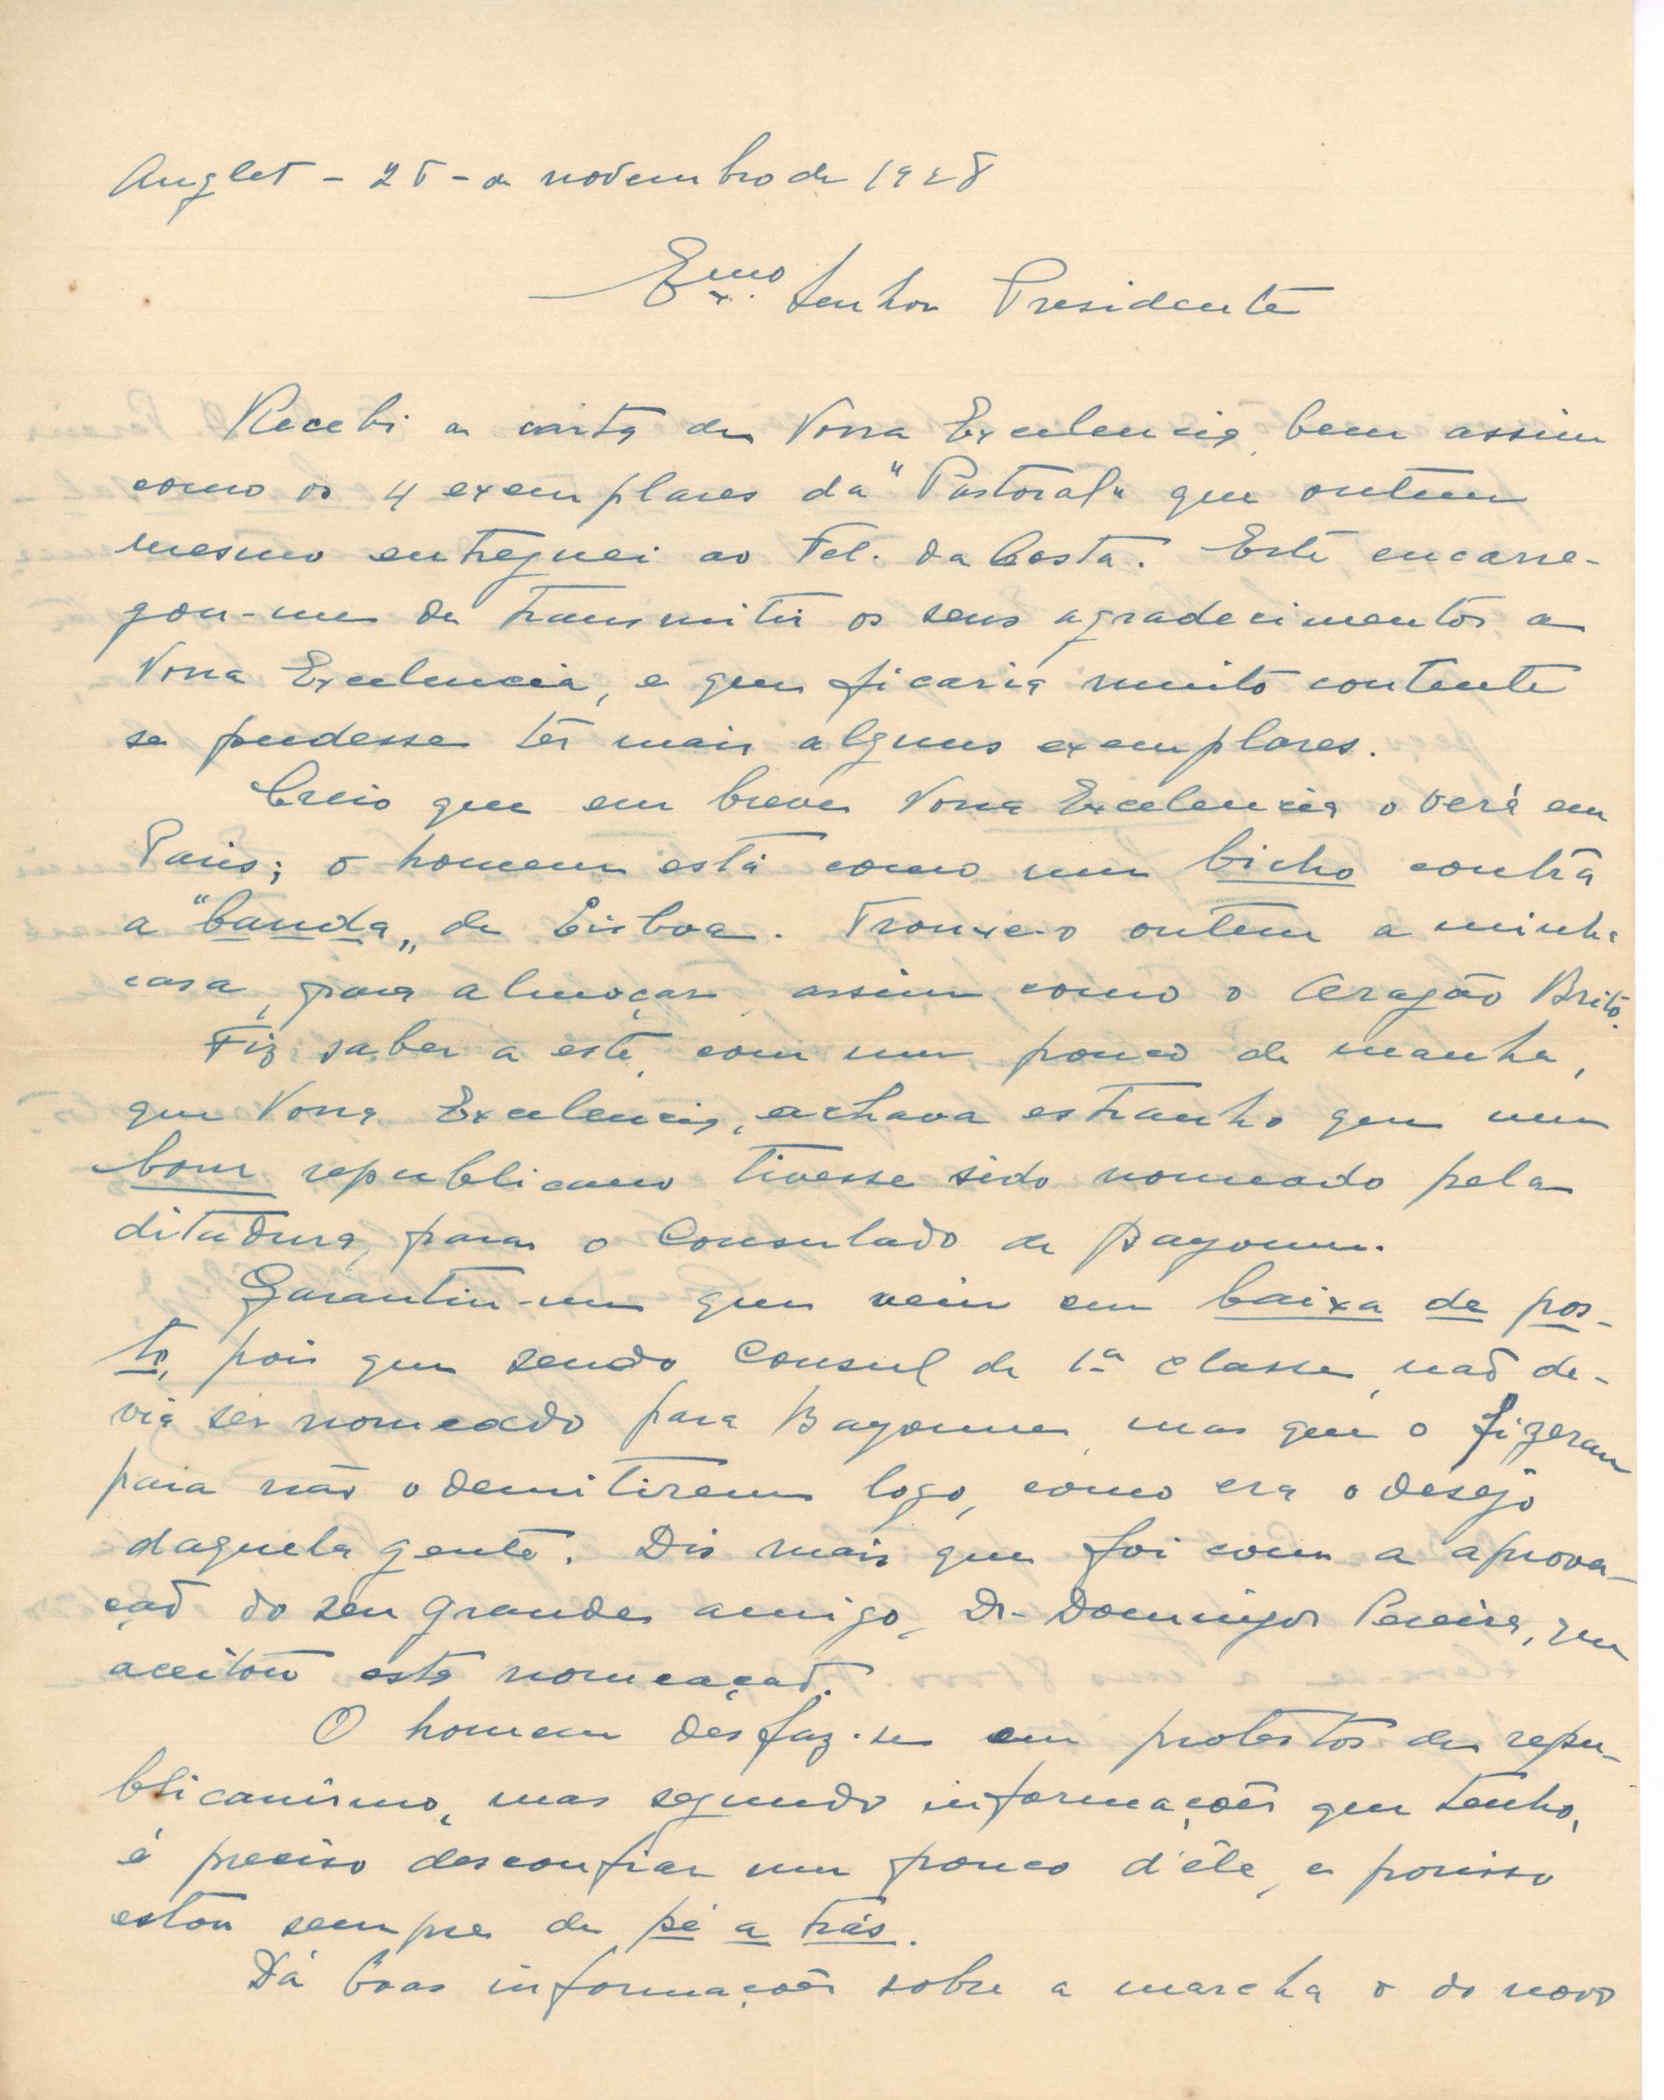 Anglet - 25 - de novembro de 1928
Exmo. Senhor Presidente
Recebi a carta de Vossa Excelencia, bem assim
como os 4 exemplares da "Pastoral" que ontem
mesmo entreguei ao Fel. da Costa. Este encarre-
gou-me de transmitir os seus agradecimentos a
Vossa Excelencia, e que ficaria muito contente
se pudesse ter mais alguns exemplares.
Creio que em breve Vossa Excelencia o verá em
Paris; o homem está como um bicho contra
a "banda" de Lisboa. Trouxe-o ontem a minha
casa, para almoçar, assim como o Aragão Brito.
Fiz saber a este, com um pouco de manha,
que Vossa Excelencia, achava estranho que um
bom republicano tivesse sido nomeado pela
ditadura, para o Consulado de Bayonne.
Garantiu-me que veiu em baixa de pos-
to, pois que sendo Consul de 1ª classe, não de-
via ser nomeado para Bayonne, mas que o fizeram
para não o demitirem logo, como era o desejo
daquela gente. Dis mais que foi com a aprova-
ção do seu grande amigo, Dr. Domingos Pereira, que
aceitou esta nomeação.
O homem desfaz-se em protestos de repu-
blicanismo, mas segundo informações que tenho,
é preciso desconfiar um pouco d'êle, e porisso
estou sempre de pé a trás.
Dá boas informações sobre a marcha o do novo